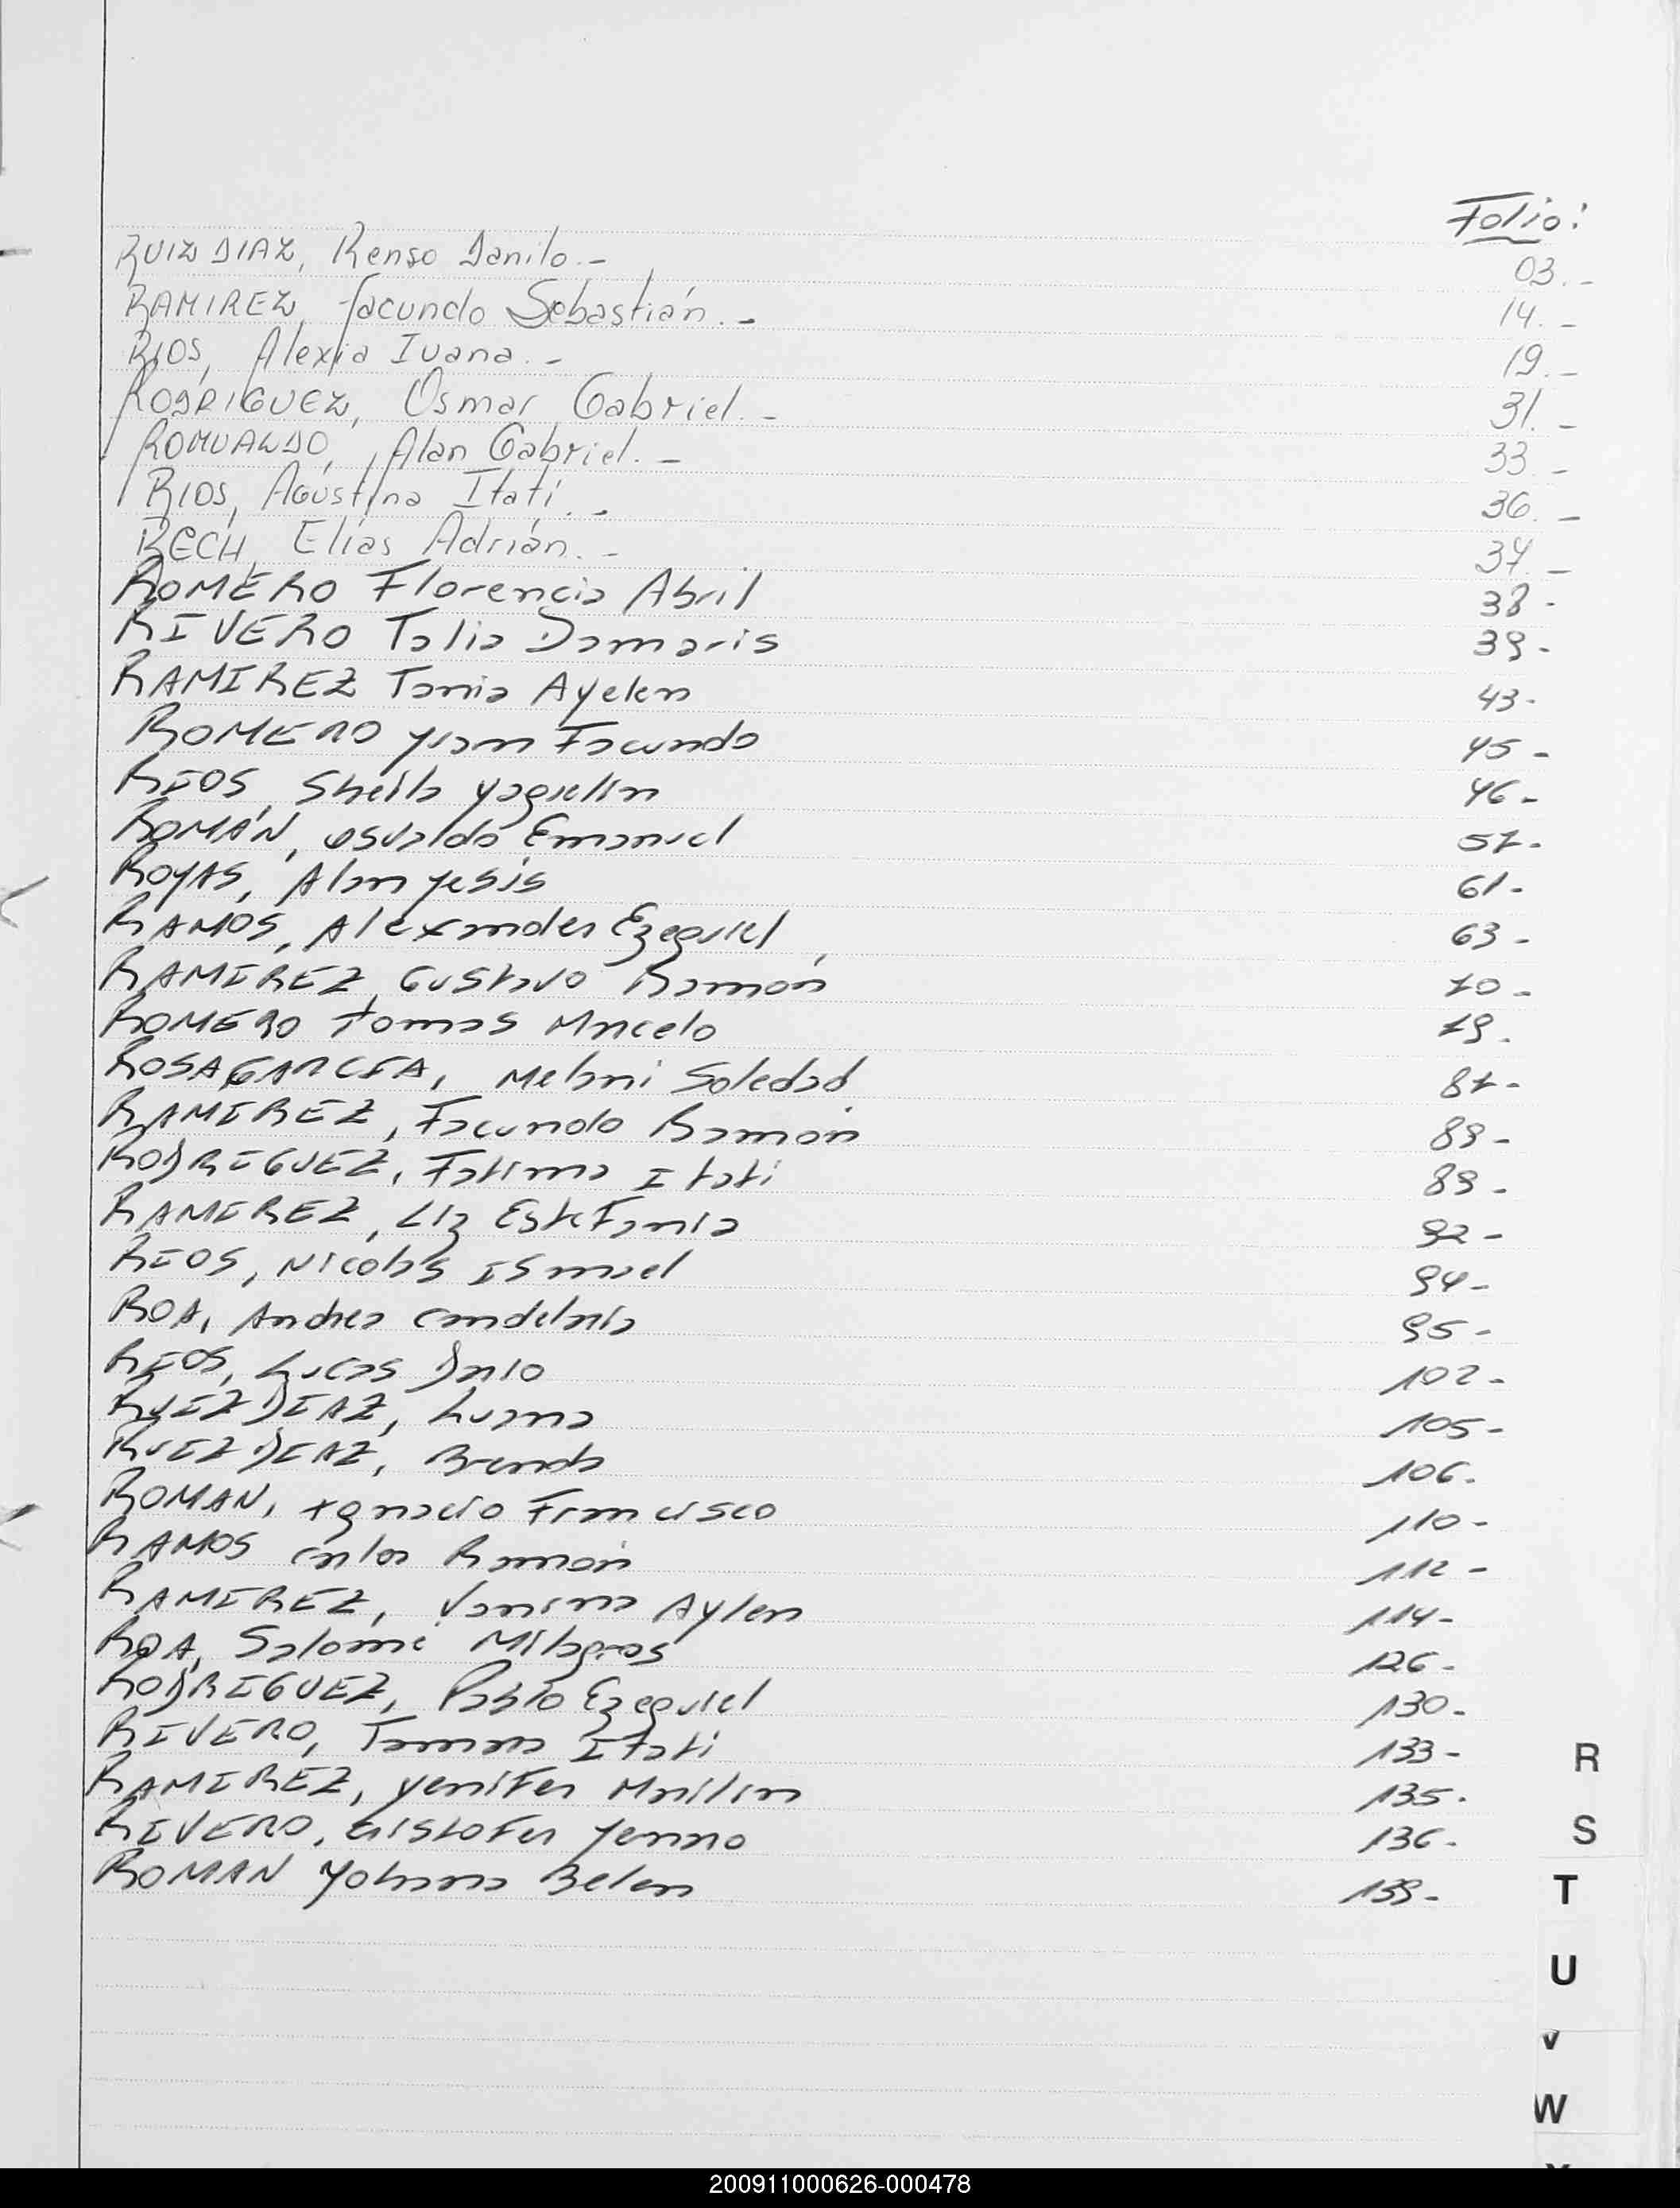 Folio:
RUIZ DIAZ, Renso Danilo.- 03.-
RAMIREZ, Facundo Sebastián.- 14.-
RIOS, Alexia Ivana.- 19.-
RODRIGUEZ, Osmar Gabriel.- 31.-
ROMUALDO, Alan Gabriel.- 33.-
RIOS, Agustina Itatí.- 36.-
RECH, Elías Adrián.- 37.-
ROMERO Florencia Abril 38-
RIVERO Talia Damaris 39-
RAMIREZ Tania Ayelen 43-
ROMERO Facundo 45-
RIOS, Sheila Yaquelin 46-
ROMÁN, Osvaldo Emanuel 57-
ROYAS, Alan Yesús 61-
RAMOS, Alexander Ezequiel 63-
RAMIREZ, Gustavo Ramón 70-
ROMERO Tomas Marcelo 79.
ROSA GARCIA, Melani Soledad 87-
RAMIREZ, Facundo Ramón 89-
RODRIGUEZ, Fatima Itati 89-
RAMIREZ, Liz Estefania 92-
RIOS, Nicolás Ismael 94-
ROA, Andrea Candelaria 95-
RIOS, Lucas Dario 102-
RUIZ DIAZ, Luana 105-
RUIZ DIAZ, Brenda 106.
ROMAN, Ignacio Francisco 110-
RAMOS Carlos Ramón 112-
RAMIREZ, Vanina Aylen 114-
ROA, Salomé Milagros 126-
RODRIGUEZ, Pablo Ezequiel 130-
RIVERO, Tamara Itati 133-
RAMIREZ, Yenifer Marilin 135.
RIVERO, Cristofer 136-
ROMAN Yohana Belen 139-
R
S
T
U
V
W
200911000626-000478